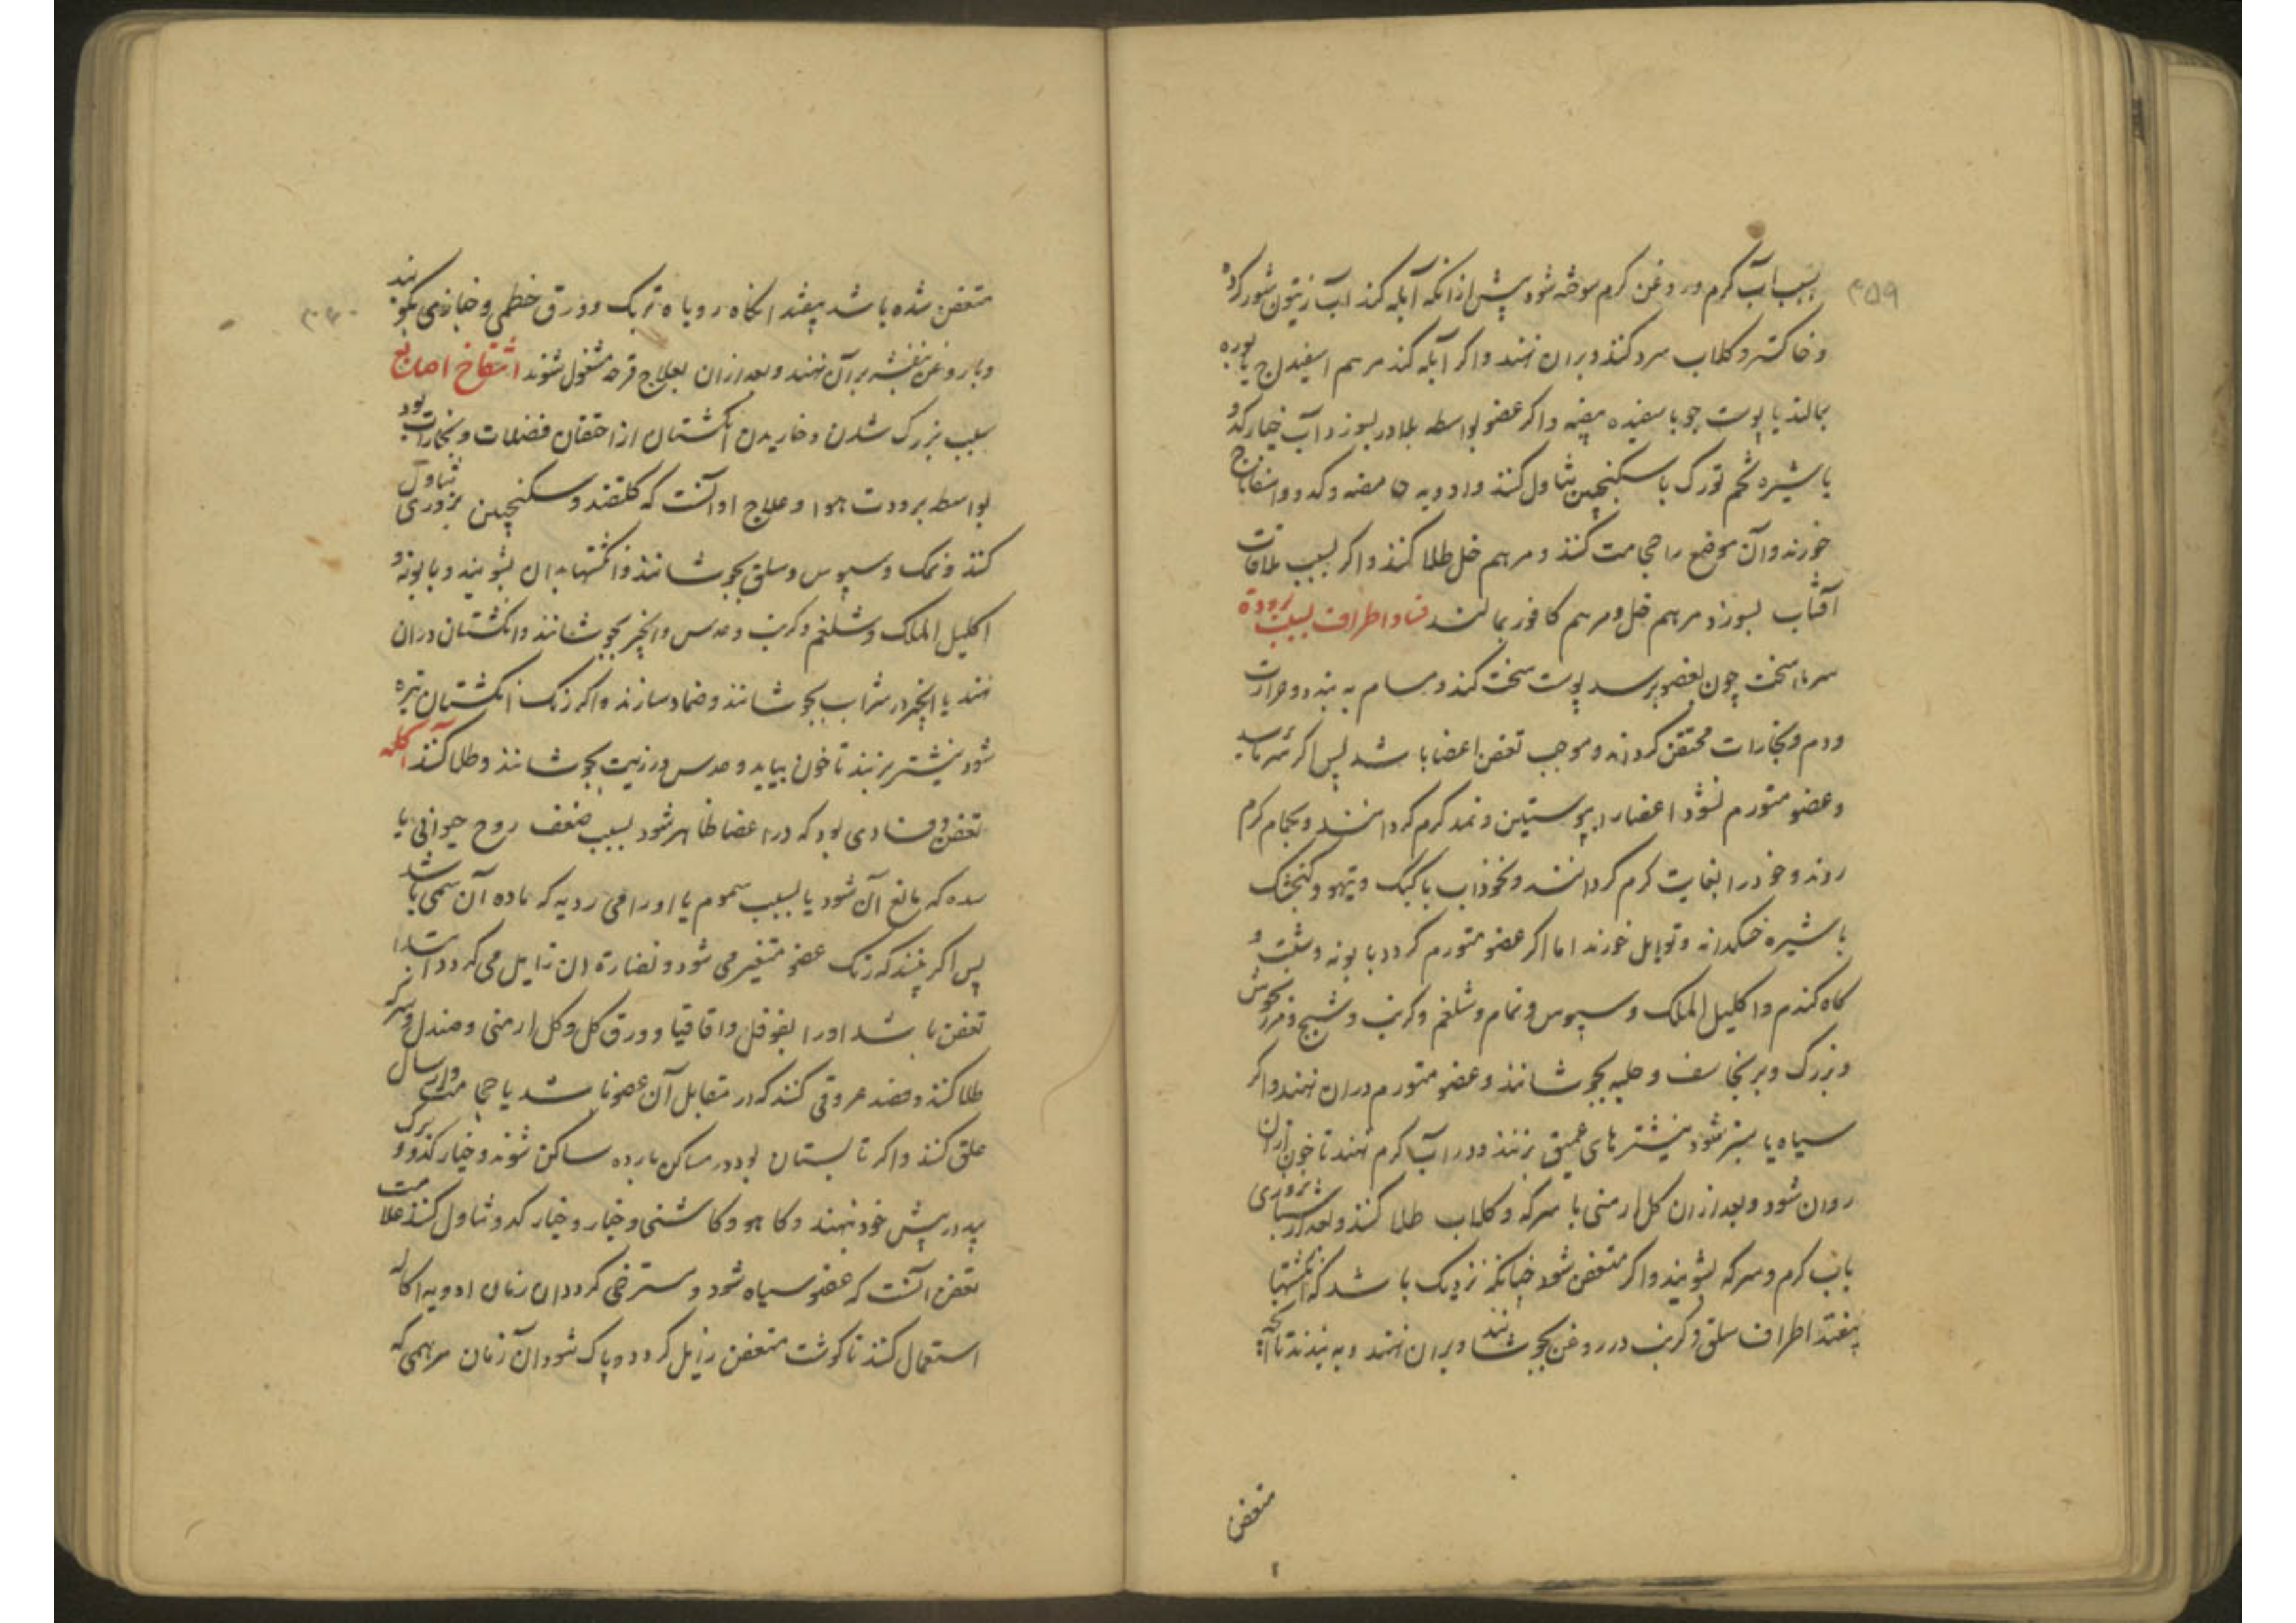 ۴۵۹
بسبب آب کرم و روغن کرم سوخته شود پیش از آنکه آبله کند آب زیتون شور کرده
و خاکستر و کلاب سرد کنند و بران نهند و اکر آبله کند مرهم اسفیداج یا بوره
بمالند یا پوست جو با سفیده بیضه و اکر عضو بواسطه بلادر بسوزد آب خیار کدو
یا شیره تخم تورک با سکنجبین تناول کنند و ادویه و کدو و اسفاناخ
خورند و آن موضع را حجامت کنند و مرهم خل طلا کنند و اکر بسبب ملاقات
آفتاب بسوزد مرهم خل و مرهم کافور بمالند فساد اطراف بسبب برودة
سرماء سخت چون بعضو برسد پوست سخت کند و مسام به بندد و حرارت
و دم و بخارات محتقن کردند و موجب تعفن اعضا باشد پس اکر سرما رسد
و عضو متورم نشود اعضا را بپوستین و نمد کرم کردانند و بحمام کرم
روند و خود را بغایت کرم کردانند و نخوداب با کبک و تیهو و کنجشک
با شیره خسکدانه و توابل خورند اما اکر عضو متورم کردد بابونه و شبت و
کاه کندم و اکلیل الملک و سپوس و نمام و شلغم و کرنب و شیح و مرزنجوش
و بزرک و برنجاسف و حلبه بجوشانند و عضو متورم دران نهند و اکر
سیاه یا سبز شود نیشترهای عمیق بزنند و در آب کرم نهند تا خون ازان
روان شود و بعد ازان کل ارمنی با سرکه و کلاب طلا کنند و بعد از
باب کرم و سرکه بشویند و اکر متعفن شود چنانکه نزدیک باشد که انکشتها
بیفتد اطراف سلق و کرنب در روغن بجوشانند و بران نهند و به بندند تا آنچه
متعفن
متعفن شده باشد بیفتد انکاه روباه تربک و ورق خطمی و خبازی بکوبند
و با روغن بنفشه بر آن نهند و بعد ازان بعلاج قرحه مشغول شوند انتفاخ اصابع
سبب بزرک شدن و خاریدن انکشتان از احتقان فضلات و بخارات بود
بواسطه برودت هوا و علاج او آنست که کلقند و سکنجبین بزوری تناول
کنند و نمک و سپوس و سلق بجوشانند و انکشتها بدان بشویند و بابونه و
اکلیل الملک و شلغم و کرنب و عدس و انجیر بجوشانند و انکشتان دران
نهند یا انجیر در شراب بجوشانند و ضماد سازند و اکر رنک انکشتان تیره
شود نیشتر بزنند تا خون بیاید و عدس در زیت بجوشانند و طلا کنند آکله
تعفن و فسادی بود که در اعضا ظاهر شود بسبب ضعف روح حیوانی یا
سده که مانع آن شود یا بسبب سموم یا اورامی ردیه که ماده آن سمی باشد
پس اکر بینند که رنک عضو متغیر می شود و نضارة ان زایل می کردد ابتداء
تعفن باشد اورا بفوفل و اقاقیا و ورق کل و کل ارمنی و صندل و سرکه
طلا کنند و فصد عروقی کنند که در مقابل آن عضو باشد یا حجامت و ارسال
علق کنند و اکر تابستان بود در مساکن بارده ساکن شوند و خیار کدو و برک
بید در پیش خود نهند و کاهو و کاشنی و خیار و خیار کدو تناول کنند علامت
تعفن آنست که عضو سیاه شود و مسترخی کردد ان زمان ادویه اکاله
استعمال کنند تا کوشت متعفن زایل کردد و پاک شود آن زمان مرهمی که